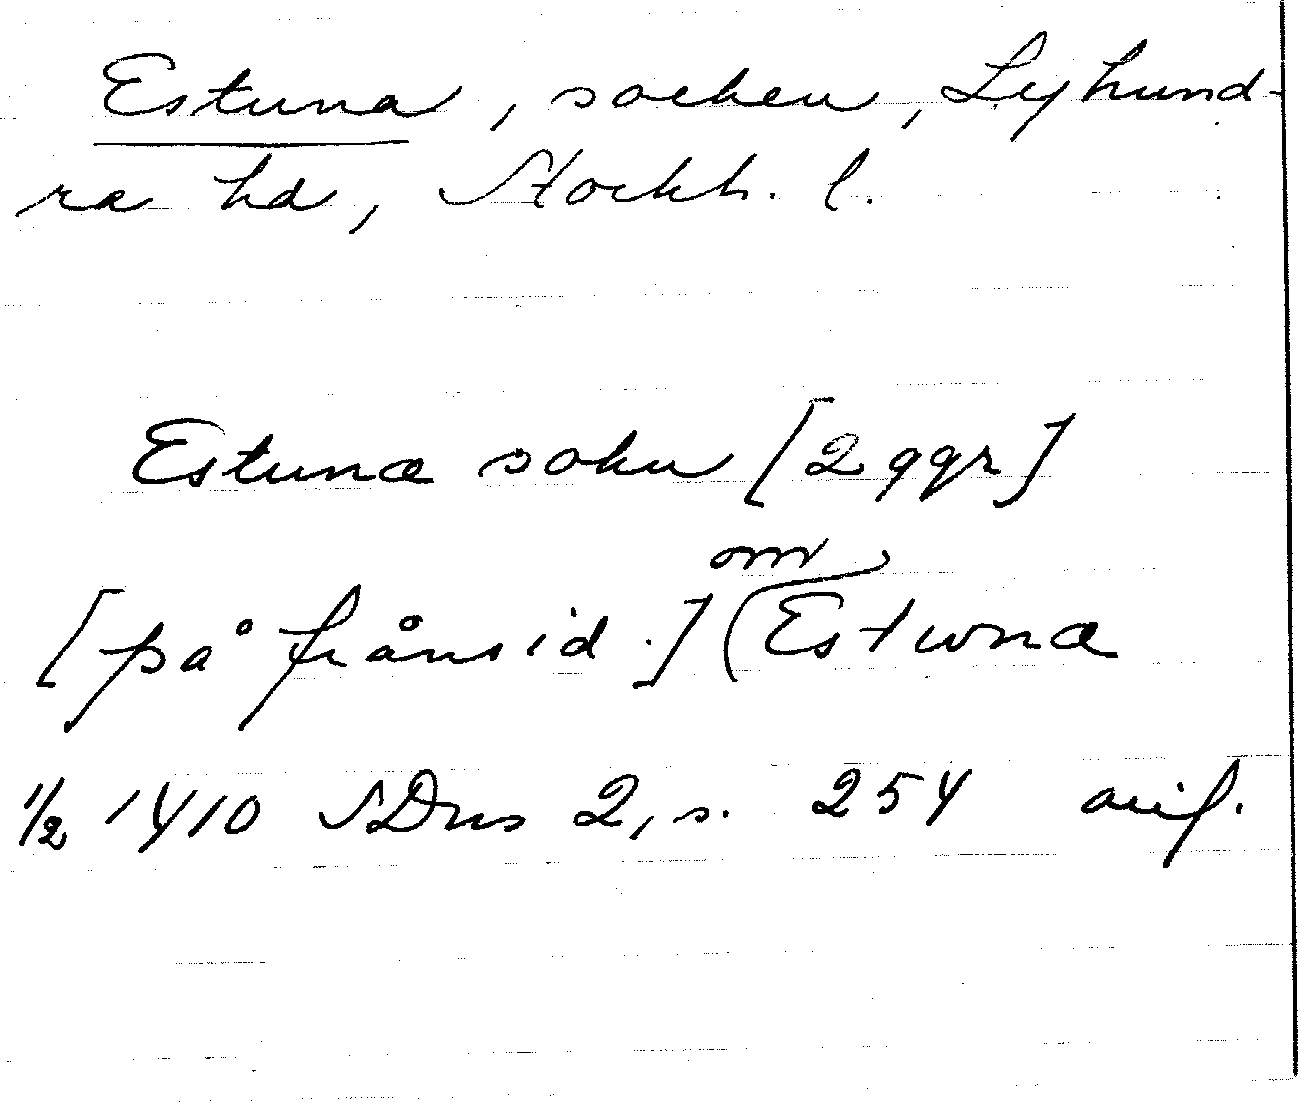 Estuna, socken, Lyhund-
ra hd, Stockh. l.
Estunæ sokn [2 ggr]
om
[på frånsid.] Estwnæ
1/2 1410 SDns 2, s. 254 avf.